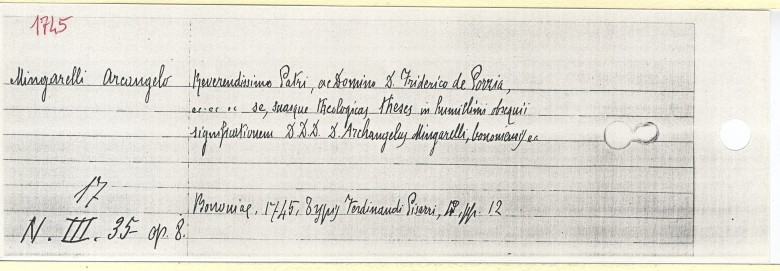 1745
Mingarelli Arcangelo
Reverendissimo Patri, ac Domino D. Friderico de
.... .. .. se, suasque theologicas theses in humillimi obsequii
significationem D.D.D. D. Archangelus Mingarelli, bononiensis
17
N. III. 35 op. 8.
Bononiae, 1745, typis Ferdinandi Pisarri, pp. 12